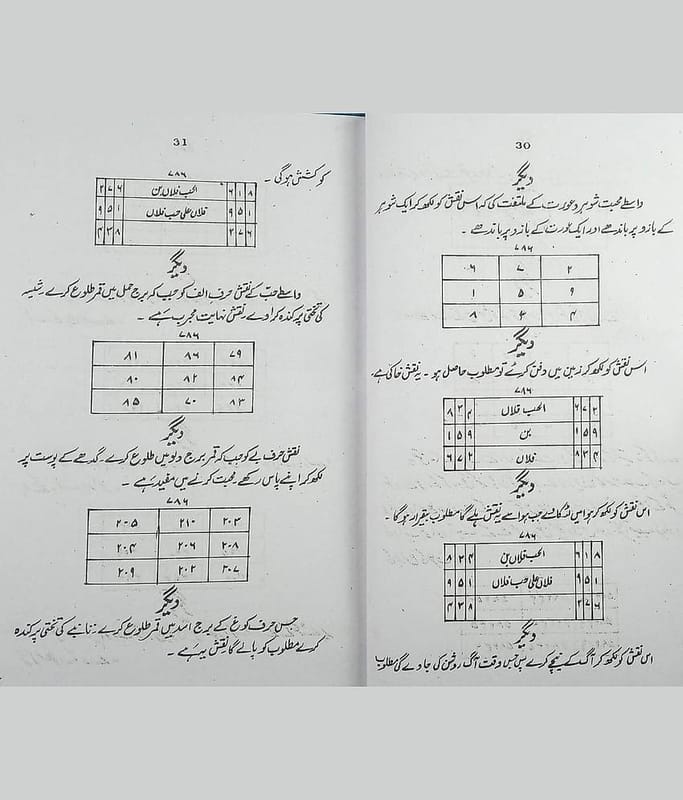 30
دیگر
واسطے محبت شوہر و عورت کے ملتفت کی کہ اس نقش کو لکھ کر ایک شوہر
کے بازو پر باندھے اور ایک عورت کے بازو پر باندھے ۔
۷۸۶
۶ ۷ ۲
۱ ۵ ۹
۸ ۳ ۴
دیگر
اس نقش کو لکھ کر زمین میں دفن کرے تو مطلوب حاصل ہو ۔ یہ نقش خاکی ہے ۔
۷۸۶
۸ ۳ ۴ الحب فلاں ۶ ۷ ۲
۱ ۵ ۹ بن ۱ ۵ ۹
۶ ۷ ۲ فلاں ۸ ۳ ۴
دیگر
اس نقش کو لکھ کر ہوا میں لٹکائے جب ہوا سے یہ نقش ہلے گا مطلوب بیقرار ہوگا ۔
۷۸۶
۸ ۳ ۴ الحب فلاں بن ۶ ۱ ۸
۹ ۵ ۱ فلاں علی حب فلاں ۹ ۵ ۱
۴ ۳ ۸ ۲ ۷ ۶
دیگر
اس نقش کو لکھ کر آگ کے نیچے کرے پس جس وقت آگ روشن کی جاوے گی مطلوب
31
کو کشش ہوگی ۔
۷۸۶
۲ ۷ ۶ الحب فلاں بن ۶ ۱ ۸
۹ ۵ ۱ فلاں علی حب فلاں ۹ ۵ ۱
۴ ۳ ۸ ۲ ۷ ۶
دیگر
واسطے حب کے نقش حرف الف کو جب کہ برج حمل میں قمر طلوع کرے
کی تختی پر کندہ کراوے نقش نہایت مجرب ہے ۔
۷۸۶
۸۱ ۸۶ ۷۹
۸۰ ۸۲ ۸۴
۸۵ ۷۰ ۸۳
دیگر
نقش حرف بے کو جب کہ قمر برج دلو میں طلوع کرے ۔ گدھے کے پوست پر
لکھ کر اپنے پاس رکھے ۔ محبت کرنے میں مفید ہے ۔
۷۸۶
۲۰۵ ۲۱۰ ۲۰۳
۲۰۴ ۲۰۶ ۲۰۸
۲۰۹ ۲۰۲ ۲۰۷
دیگر
جس حرف کو غ کے برج اسد میں قمر طلوع کرے تانبے کی تختی پر کندہ
کرے مطلوب کو پالے گا نقش یہ ہے ۔